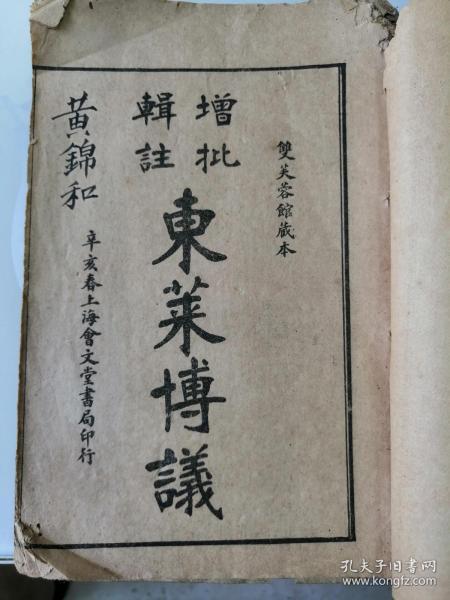 雙芙蓉館藏本
增批
輯註
東萊博議
辛亥春上海會文堂書局印行
黃錦和
孔夫子旧书网
www.kongfz.com